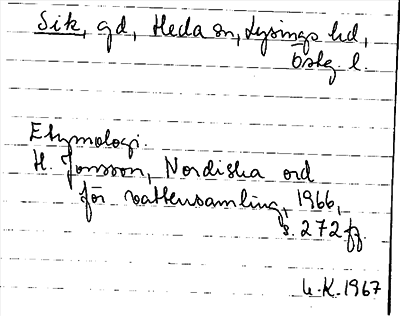 Sik, gd, Heda sn, Lysings hd,
Östg. l.
Etymologi.
H. Jonsson, Nordiska ord
för vattensamling, 1966,
s. 272 ff.
G.K. 1967